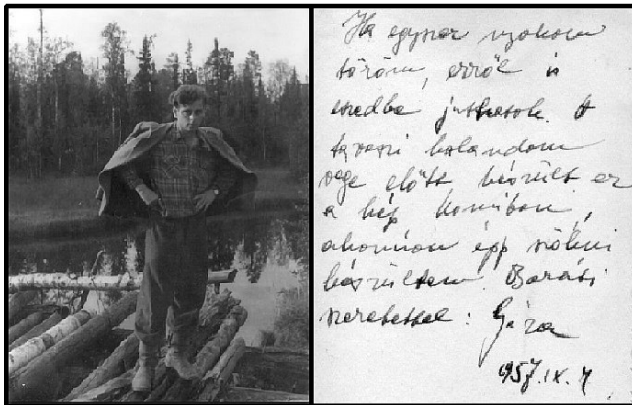 Ha egyszer nyakam
töröm, erről is
eszedbe juthatok. A
tavaszi kalandom
vége előtt készült ez
a kép Komiban,
ahonnan épp szökni
készültem. Baráti
szeretettel: Géza
1957.IX.4